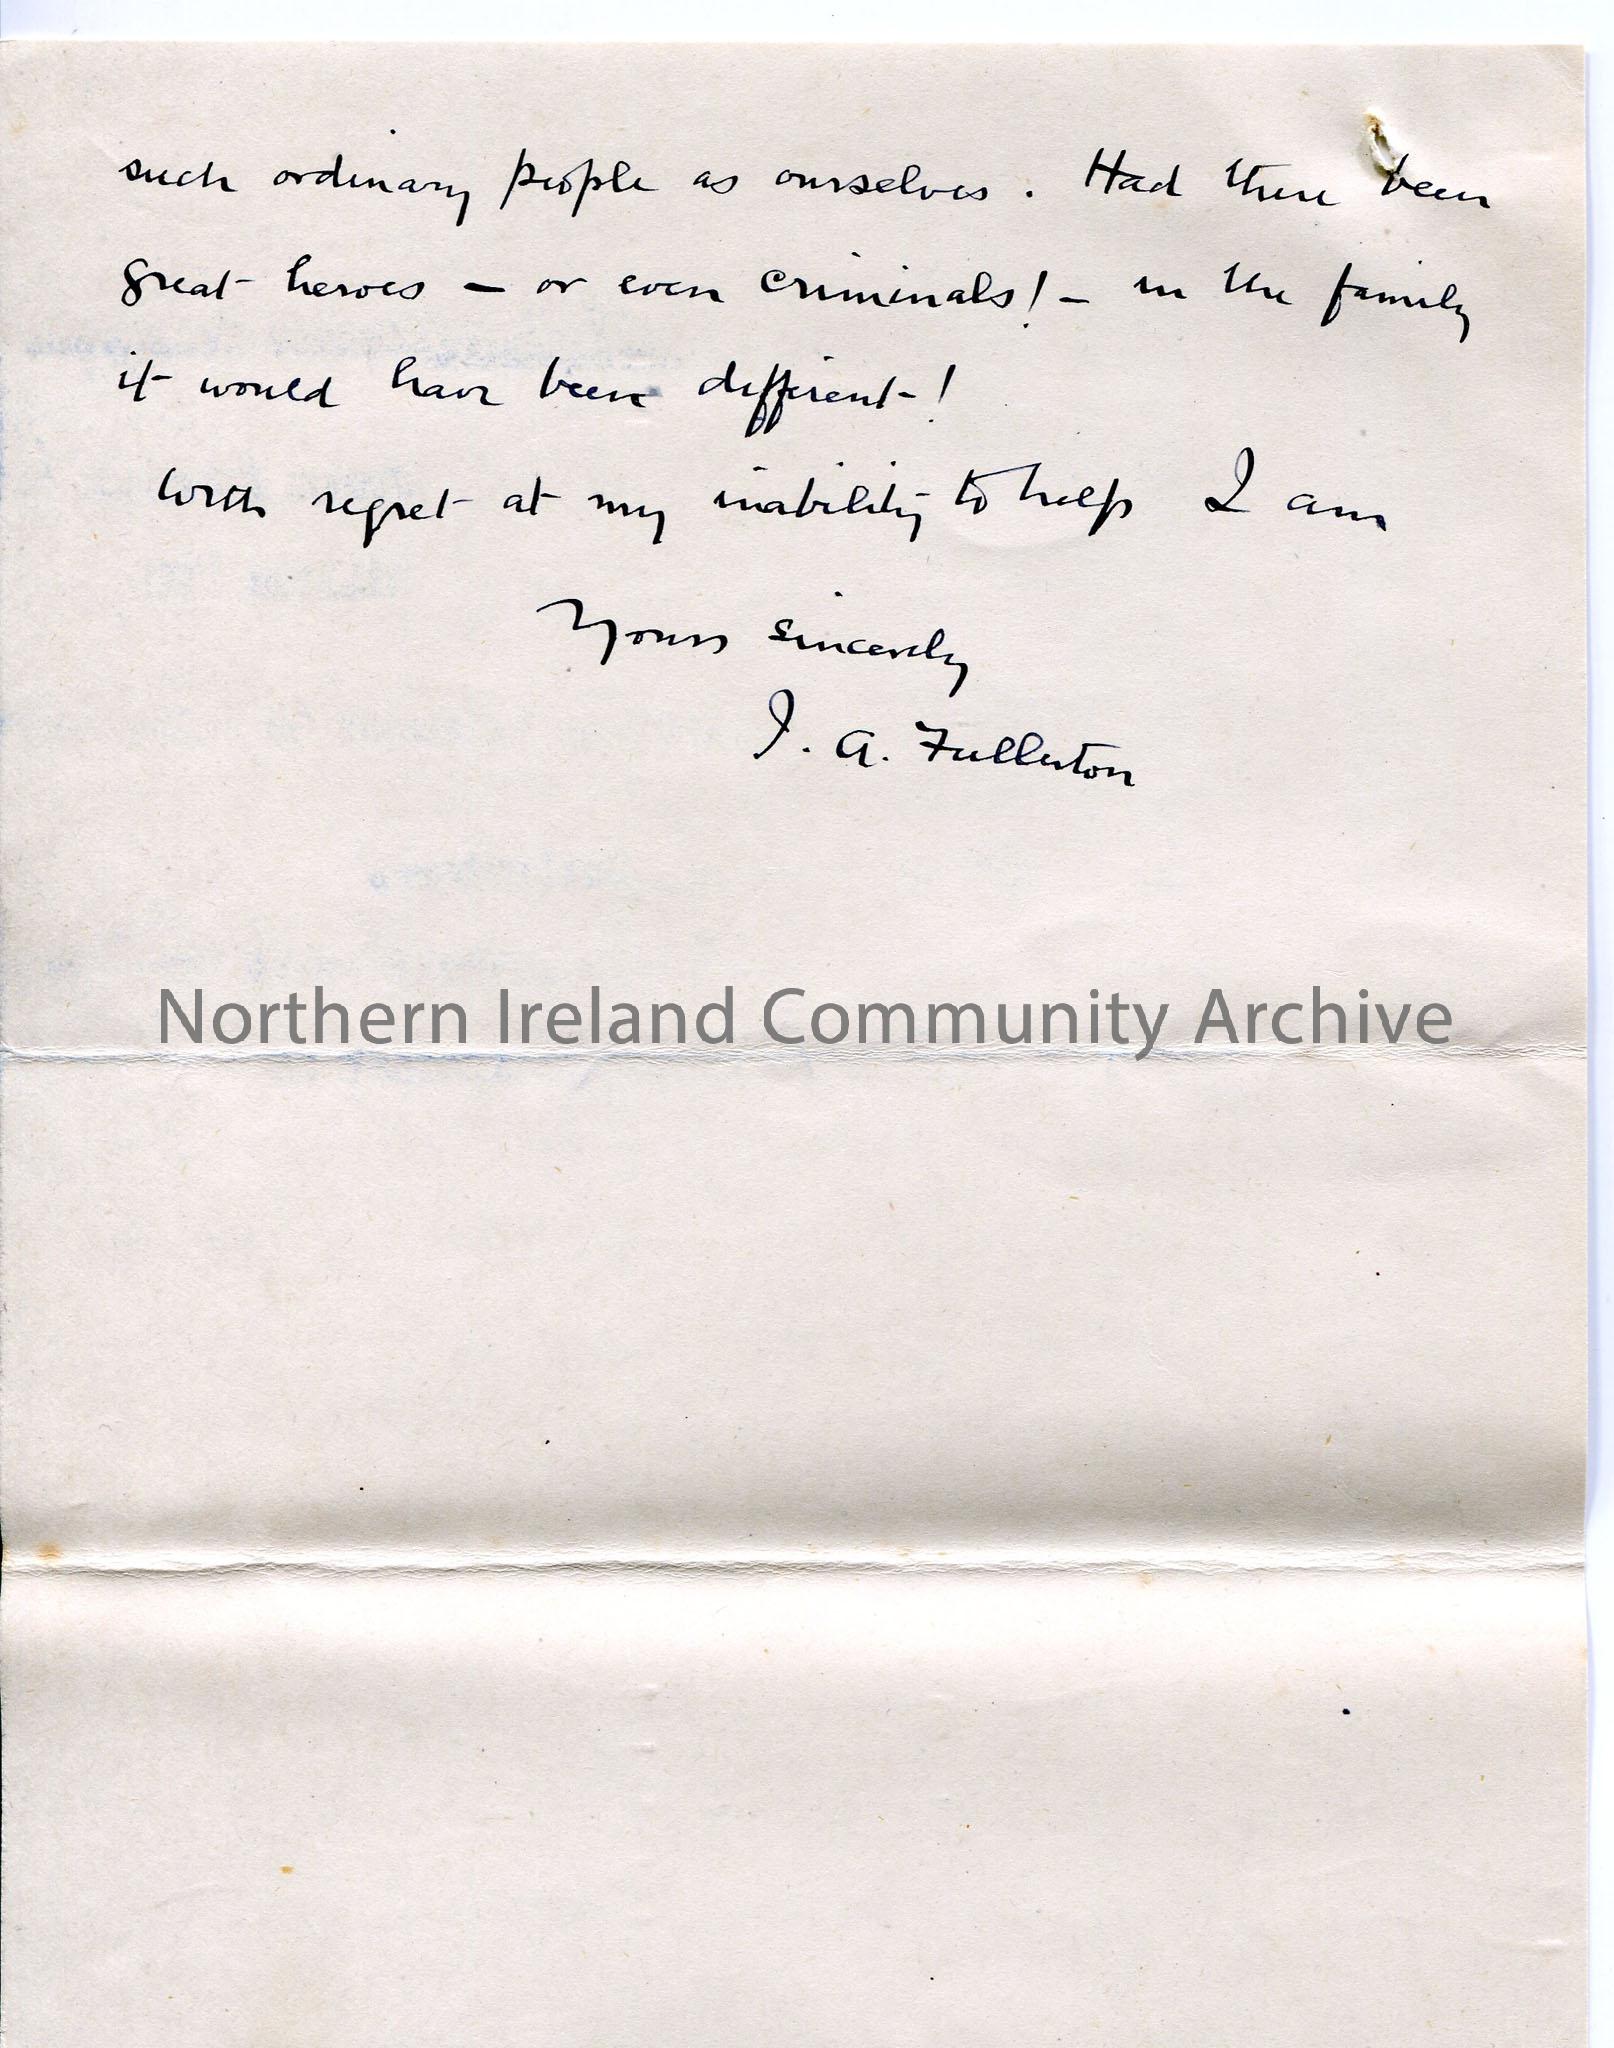 such ordinary people as ourselves. Had there been
great heroes – or even criminals! – in the family
it would have been different!
With regret at my inability to help I am
Yours sincerely
J. A. Fullerton
Northern Ireland Community Archive